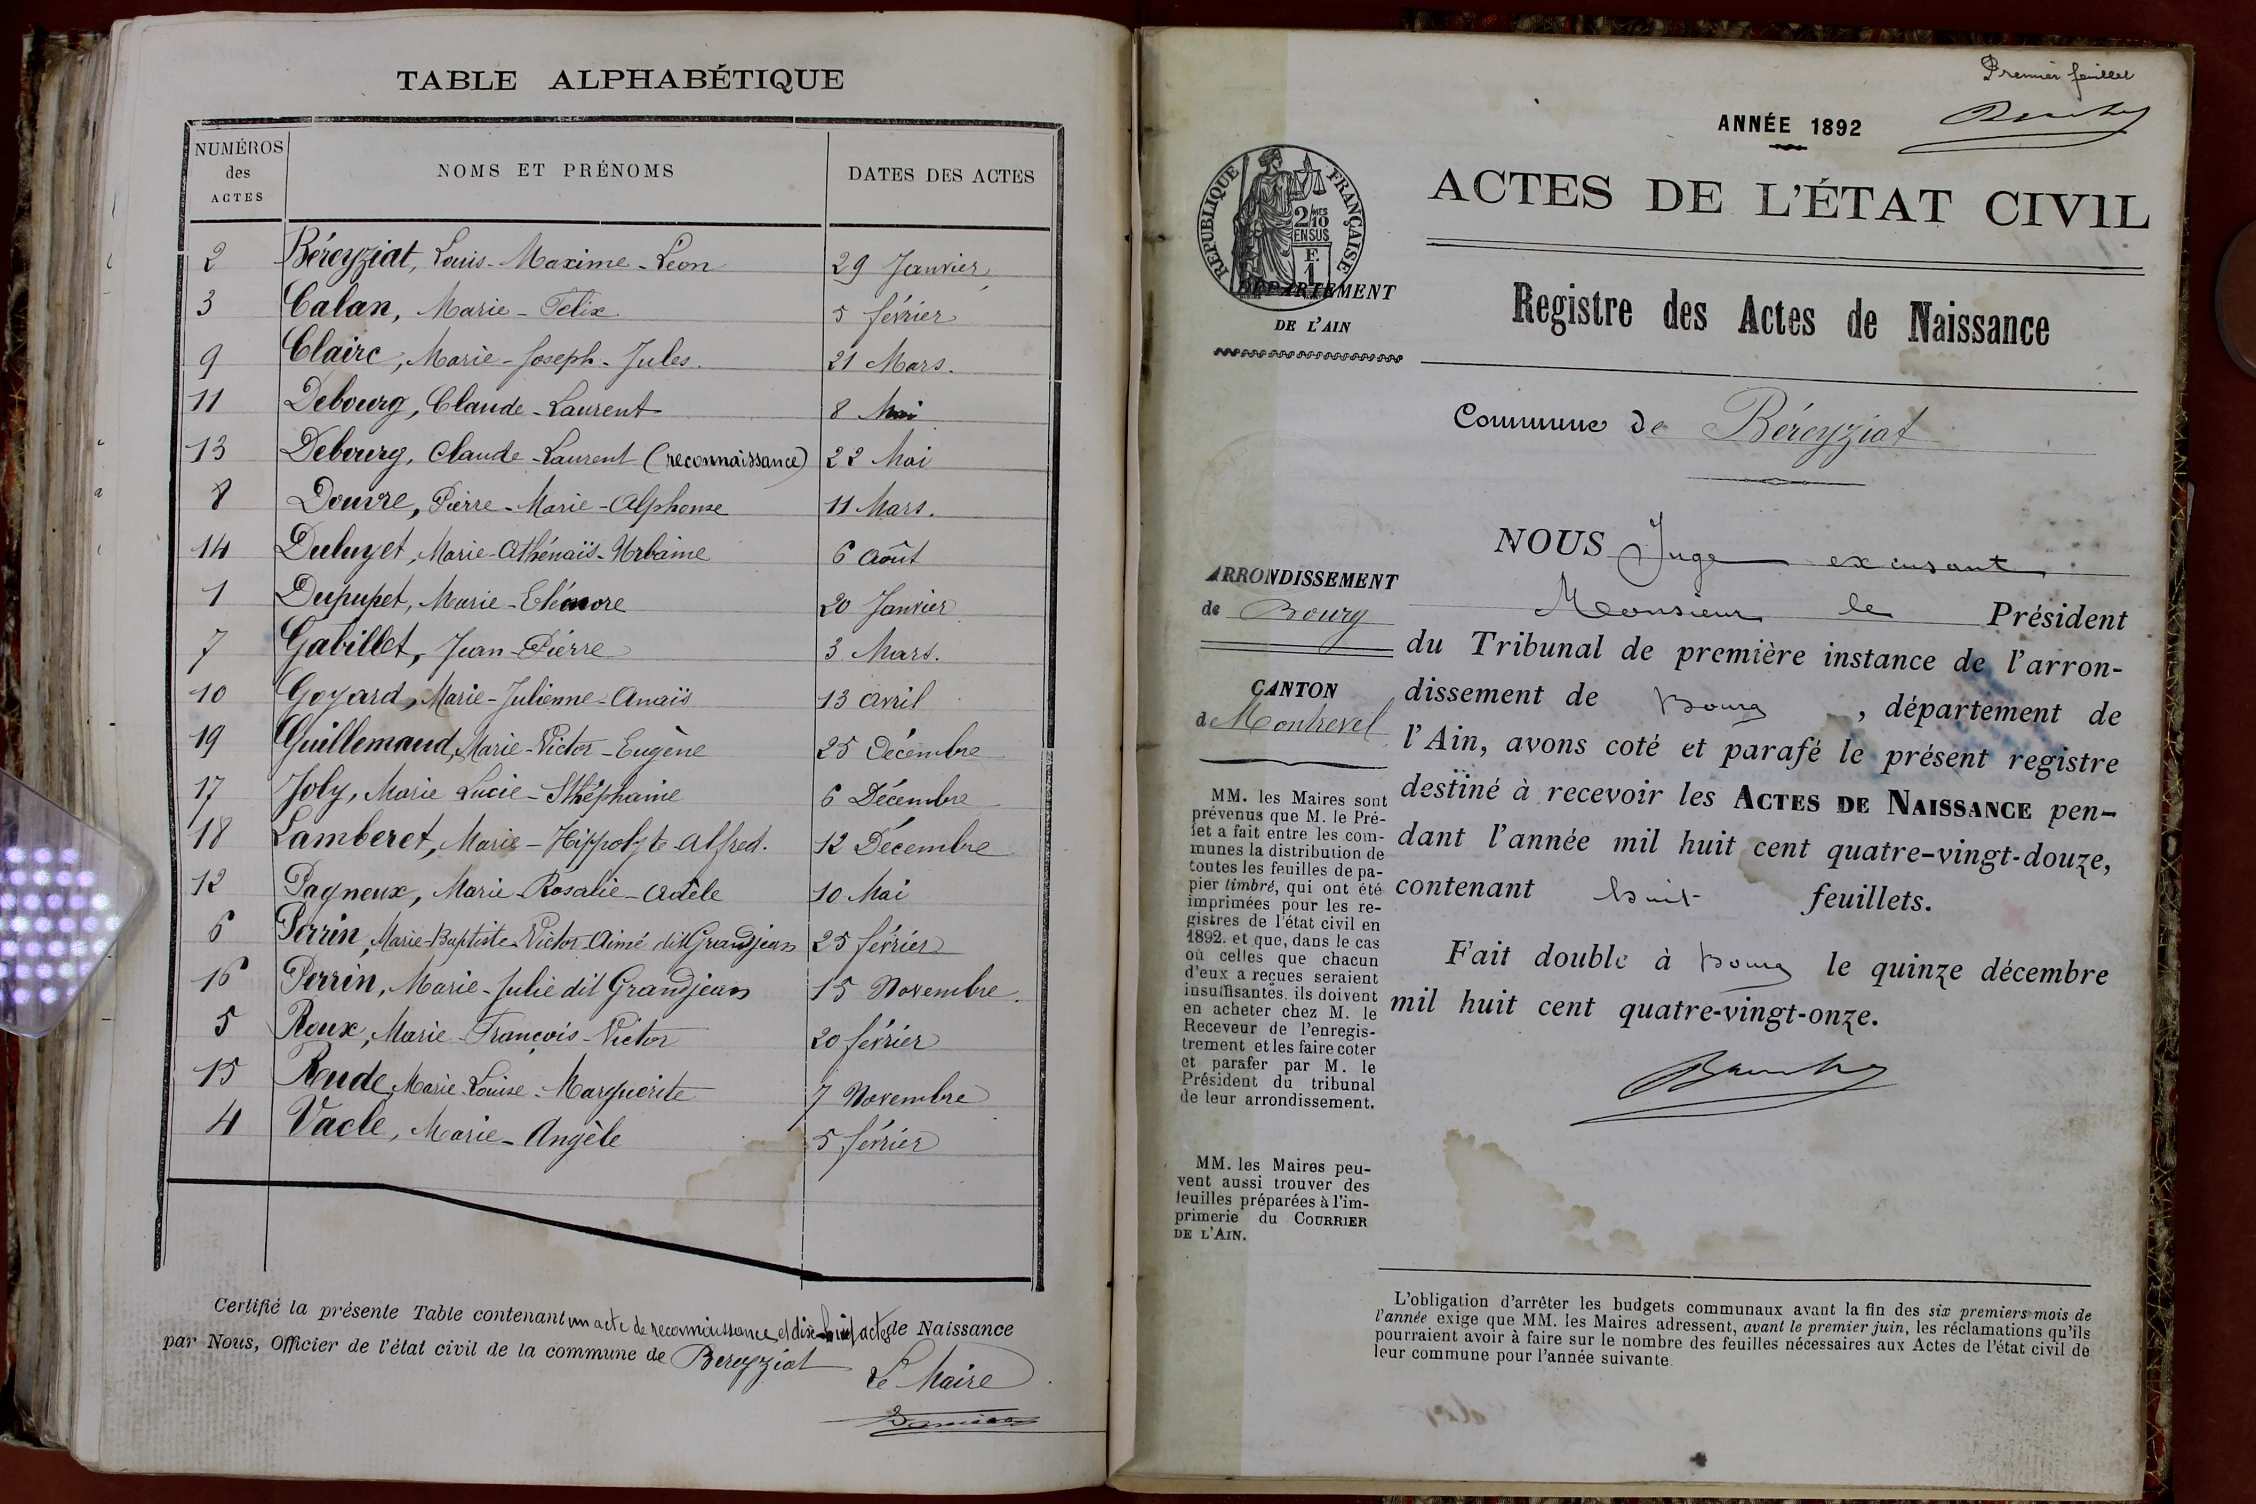 TABLE ALPHABÉTIQUE
NUMÉROS des ACTES NOMS ET PRÉNOMS DATES DES ACTES
2 Béreyziat, Louis-Maxime-Léon 29 Janvier
3 Calan, Marie-Félix 5 février
9 Clairc, Marie-Joseph-Jules. 21 Mars.
11 Debourg, Claude-Laurent 8 Mai
13 Debourg, Claude-Laurent (reconnaissance) 22 Mai
8 Douvre, Pierre-Marie-Alphonse 11 Mars.
14 Duluyet, Marie-Athénaïs-Urbaine 6 Août
1 Dupupet, Marie-Eléonore 20 Janvier
7 Gabillet, Jean-Pierre 3 Mars.
10 Goyard, Marie-Julienne-Anaïs 13 avril
19 Guillemaud, Marie-Victor-Eugène 25 Décembre
17 Joly, Marie Lucie-Sthéphanie 6 Décembre
18 Lamberet, Marie-Hippolyte-Alfred. 12 Décembre
12 Pagneux, Marie-Rosalie-Adèle 10 Mai
6 Perrin, Marie-Baptiste-Victor-Aimé dit Grandjean 25 février
16 Perrin, Marie-Julie dit Grandjean 15 Novembre.
5 Roux, Marie-François-Victor 20 février
15 Rude, Marie-Louise-Marguerite 7 Novembre
4 Vacle, Marie-Angèle 5 février
Certifié la présente Table contenant un acte de reconnaissance et dix-huit actes de Naissance
par Nous, Officier de l'état civil de la commune de Bereyziat
Le Maire
Premier feuillet
ANNÉE 1892
ACTES DE L'ÉTAT CIVIL
RÉPUBLIQUE FRANÇAISE
2/10 EN SUS
F.
1
DÉPARTEMENT
DE L'AIN
Registre des Actes de Naissance
Commune de Béreyziat
ARRONDISSEMENT
de Bourg
CANTON
de Montrevel
MM. les Maires sont
prévenus que M. le Pré-
fet a fait entre les com-
munes la distribution de
toutes les feuilles de pa-
pier timbré, qui ont été
imprimées pour les re-
gistres de l'état civil en
1892. et que, dans le cas
où celles que chacun
d'eux a reçues seraient
insuffisantes. ils doivent
en acheter chez M. le
Receveur de l'enregis-
trement et les faire coter
et parafer par M. le
Président du tribunal
de leur arrondissement.
MM. les Maires peu-
vent aussi trouver des
feuilles préparées à l'im-
primerie du COURRIER
DE L'AIN.
NOUS Juge excusant
Monsieur le Président
du Tribunal de première instance de l'arron-
dissement de Bourg, département de
l'Ain, avons coté et parafé le présent registre
destiné à recevoir les ACTES DE NAISSANCE pen-
dant l'année mil huit cent quatre-vingt-douze,
contenant huit feuillets.
Fait double à Bourg le quinze décembre
mil huit cent quatre-vingt-onze.
L'obligation d'arrêter les budgets communaux avant la fin des six premiers mois de
l'année exige que MM. les Maires adressent, avant le premier juin, les réclamations qu'ils
pourraient avoir à faire sur le nombre des feuilles nécessaires aux Actes de l'état civil de
leur commune pour l'année suivante.